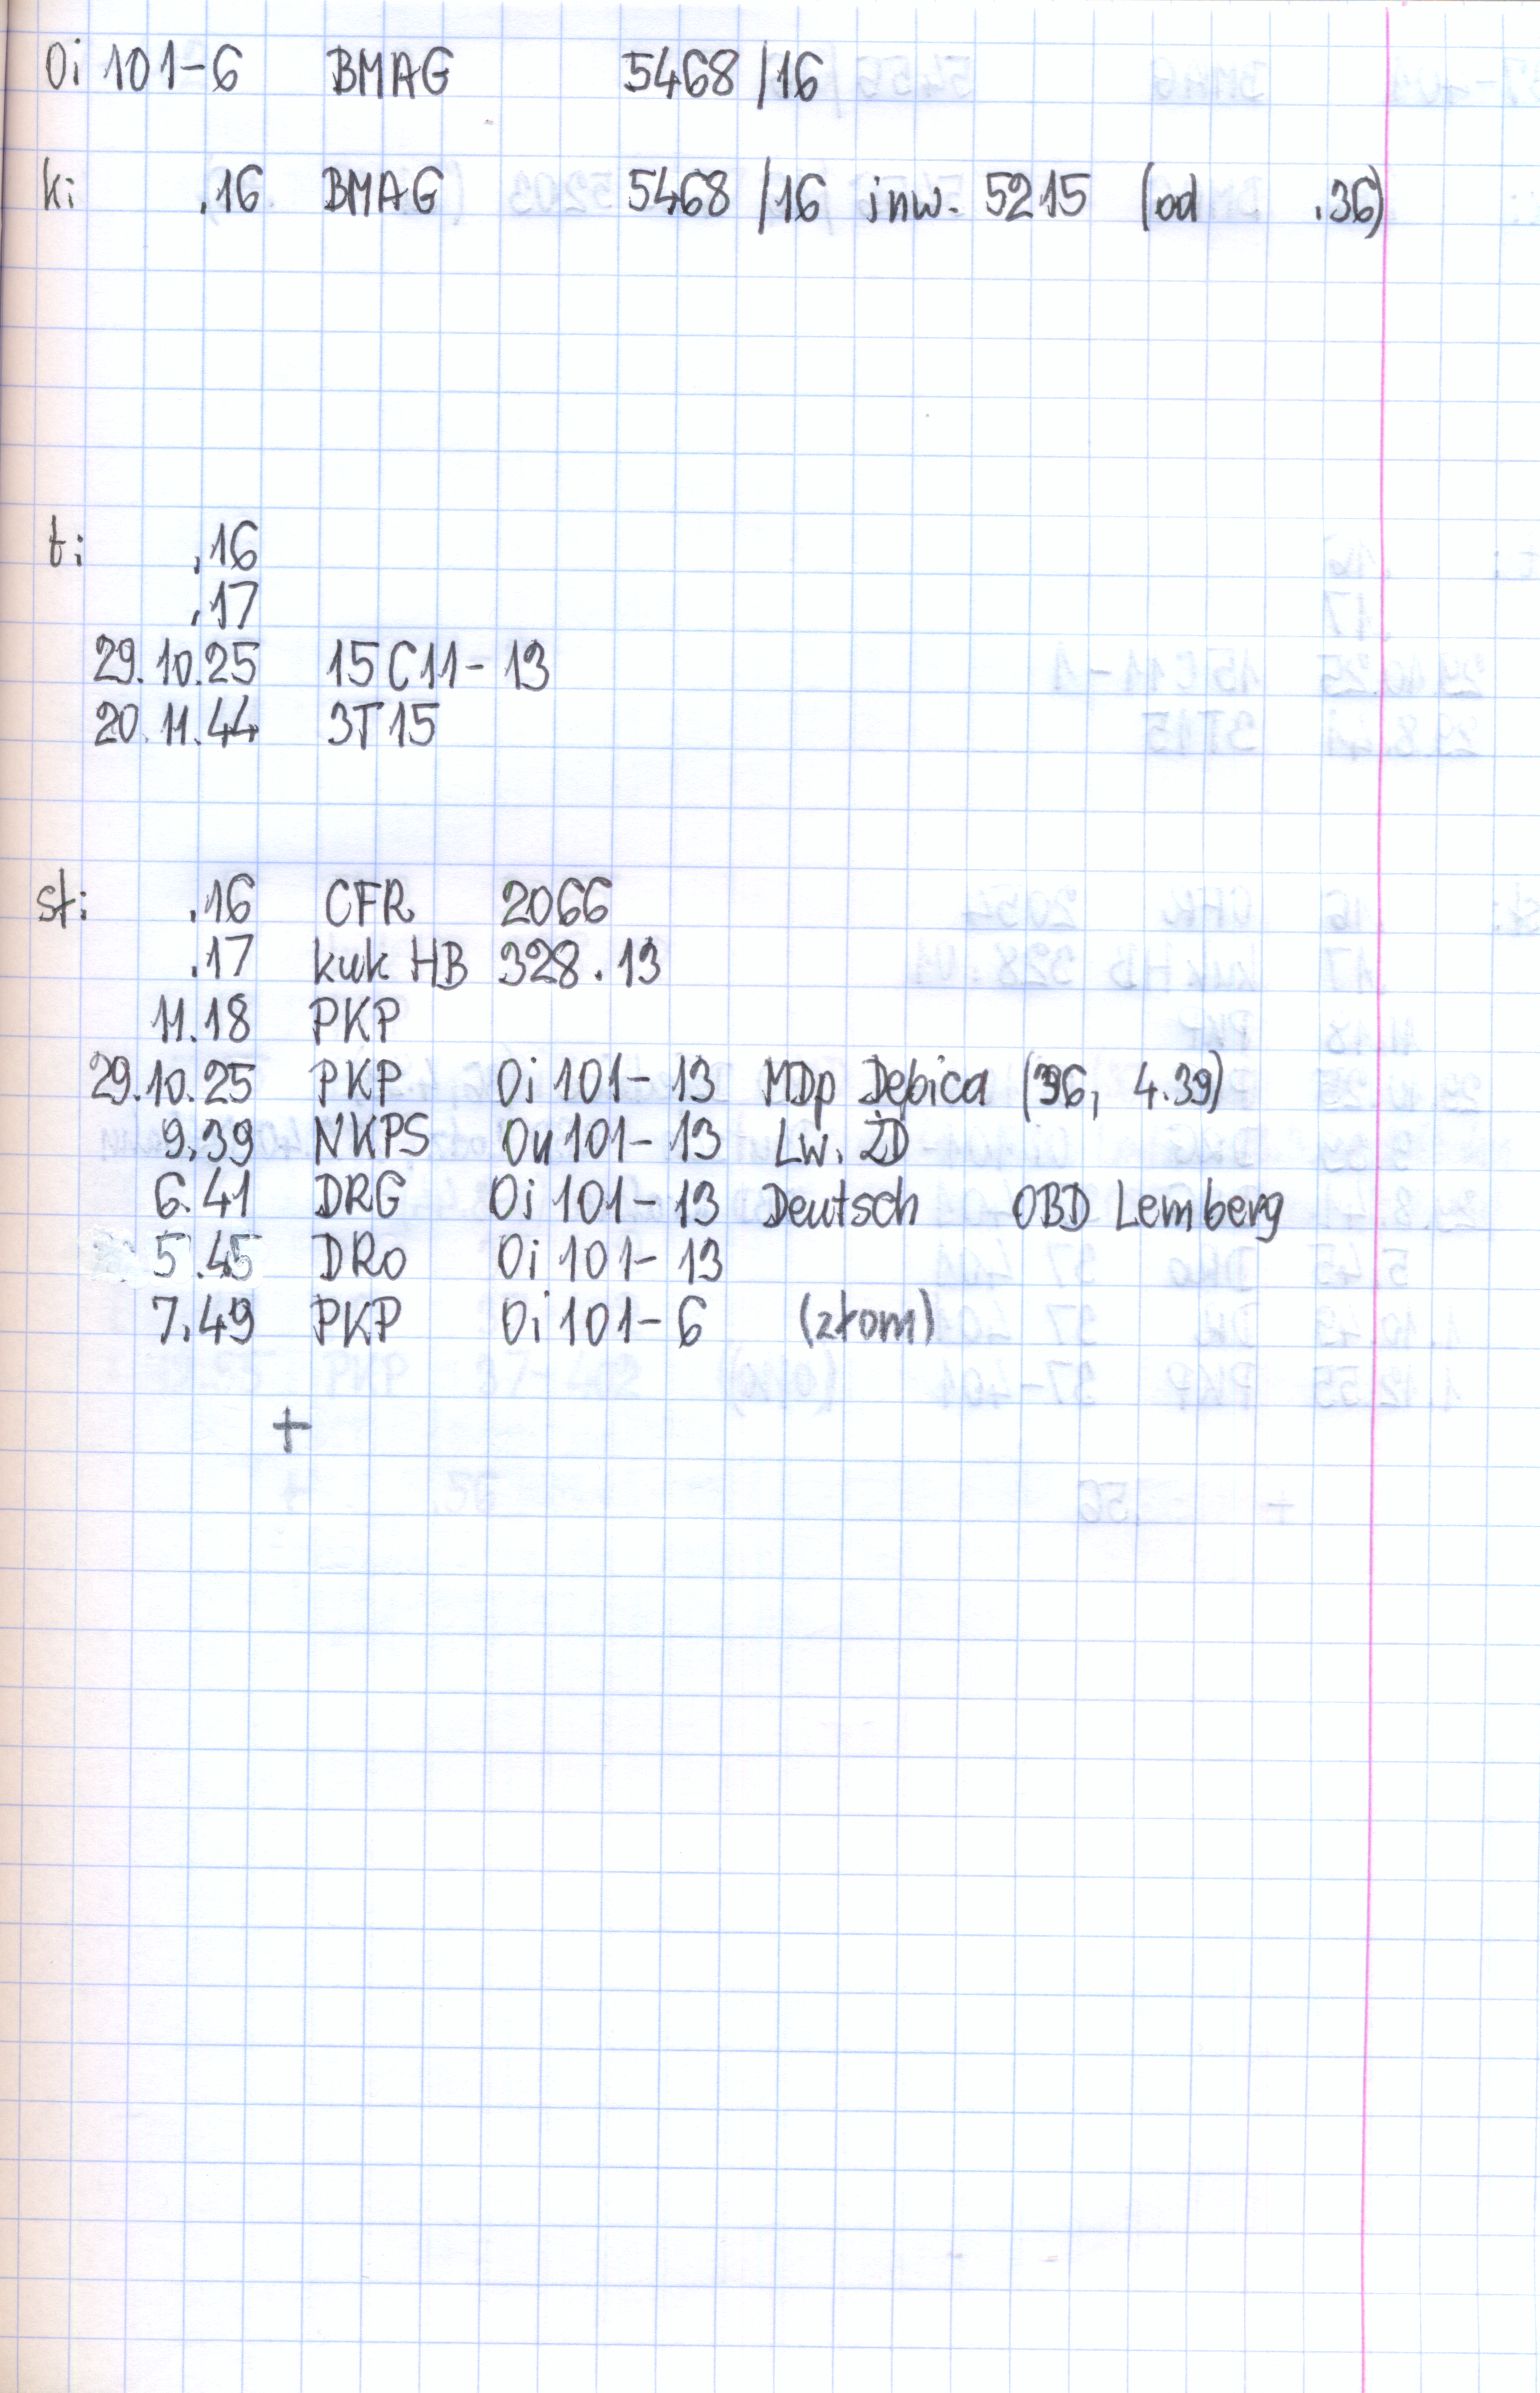 Oi 101-6 BMAG 5468/16
k: .16 BMAG 5468/16 inw. 5215 (od .36)
t: .16
.17
29.10.25 15C11-13
20.11.44 3T15
st: .16 CFR 2066
.17 kuk HB 328.13
11.18 PKP
29.10.25 PKP Oi 101-13 MDp Dębica (36, 4.39)
9.39 NKPS Ou 101-13 Lw. ŻD
6.41 DRG Oi 101-13 Deutsch OBD Lemberg
5.45 DRo Oi 101-13
7.49 PKP Oi 101-6 (złom)
+